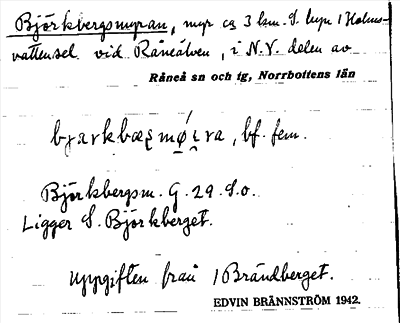 Björkbergsmyran, myr ca 3 km. S. byn 1 Holms-
vattensel vid Råneälven, i N.V. delen av
Råneå sn och tg, Norrbottens län
bf. fem.
Björkbergsm. G. 29. S.o.
Ligger S. Björkberget.
Uppgiften från 1 Brändberget.
EDVIN BRÄNNSTRÖM 1942.